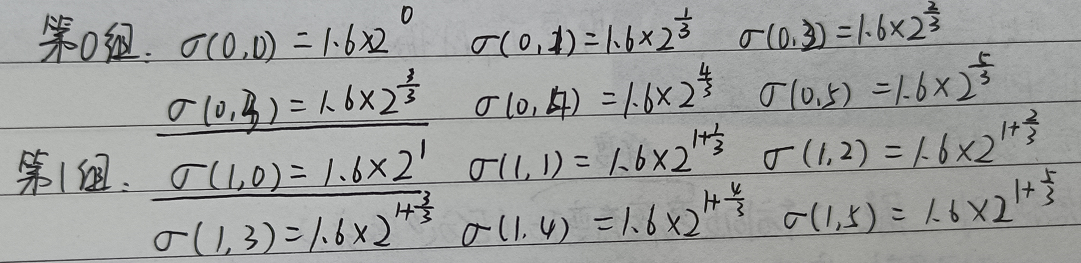 第0组: σ(0,0) = 1.6×2^0 σ(0,1) = 1.6×2^{1/3} σ(0,2) = 1.6×2^{2/3}
σ(0,3) = 1.6×2^{3/3} σ(0,4) = 1.6×2^{4/3} σ(0,5) = 1.6×2^{5/3}
第1组: σ(1,0) = 1.6×2^1 σ(1,1) = 1.6×2^{1+1/3} σ(1,2) = 1.6×2^{1+2/3}
σ(1,3) = 1.6×2^{1+3/3} σ(1.4) = 1.6×2^{1+4/3} σ(1,5) = 1.6×2^{1+5/3}